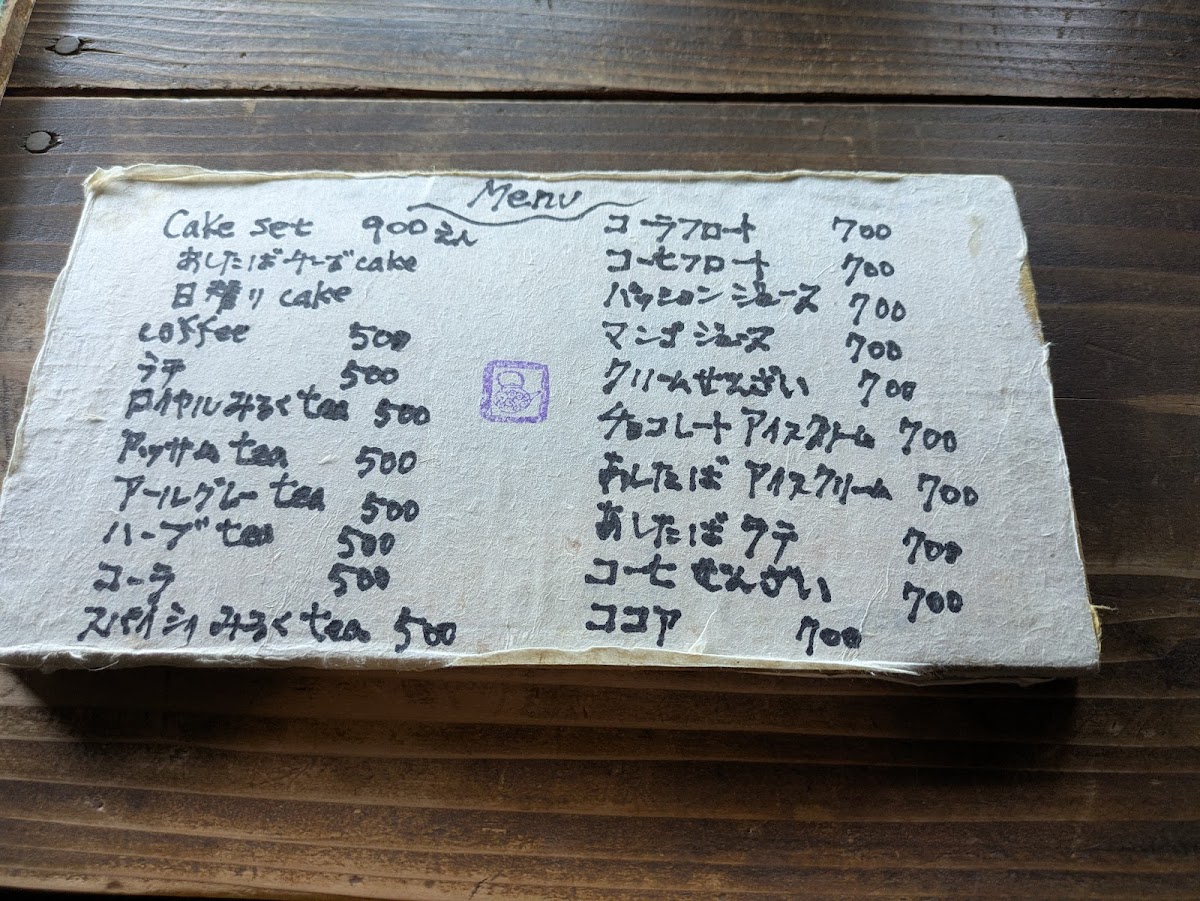 Menu
Cake set 900えん
あしたばチーズcake
日替りcake
coffee 500
ラテ 500
ロイヤルみるくtea 500
アッサムtea 500
アールグレーtea 500
ハーブtea 500
コーラ 500
スパイシィみるくtea 500
コーラフロート 700
コーヒフロート 700
パッションジュース 700
マンゴジュース 700
クリームぜんざい 700
チョコレートアイスクリーム 700
あしたばアイスクリーム 700
あしたばラテ 700
コーヒぜんざい 700
ココア 700